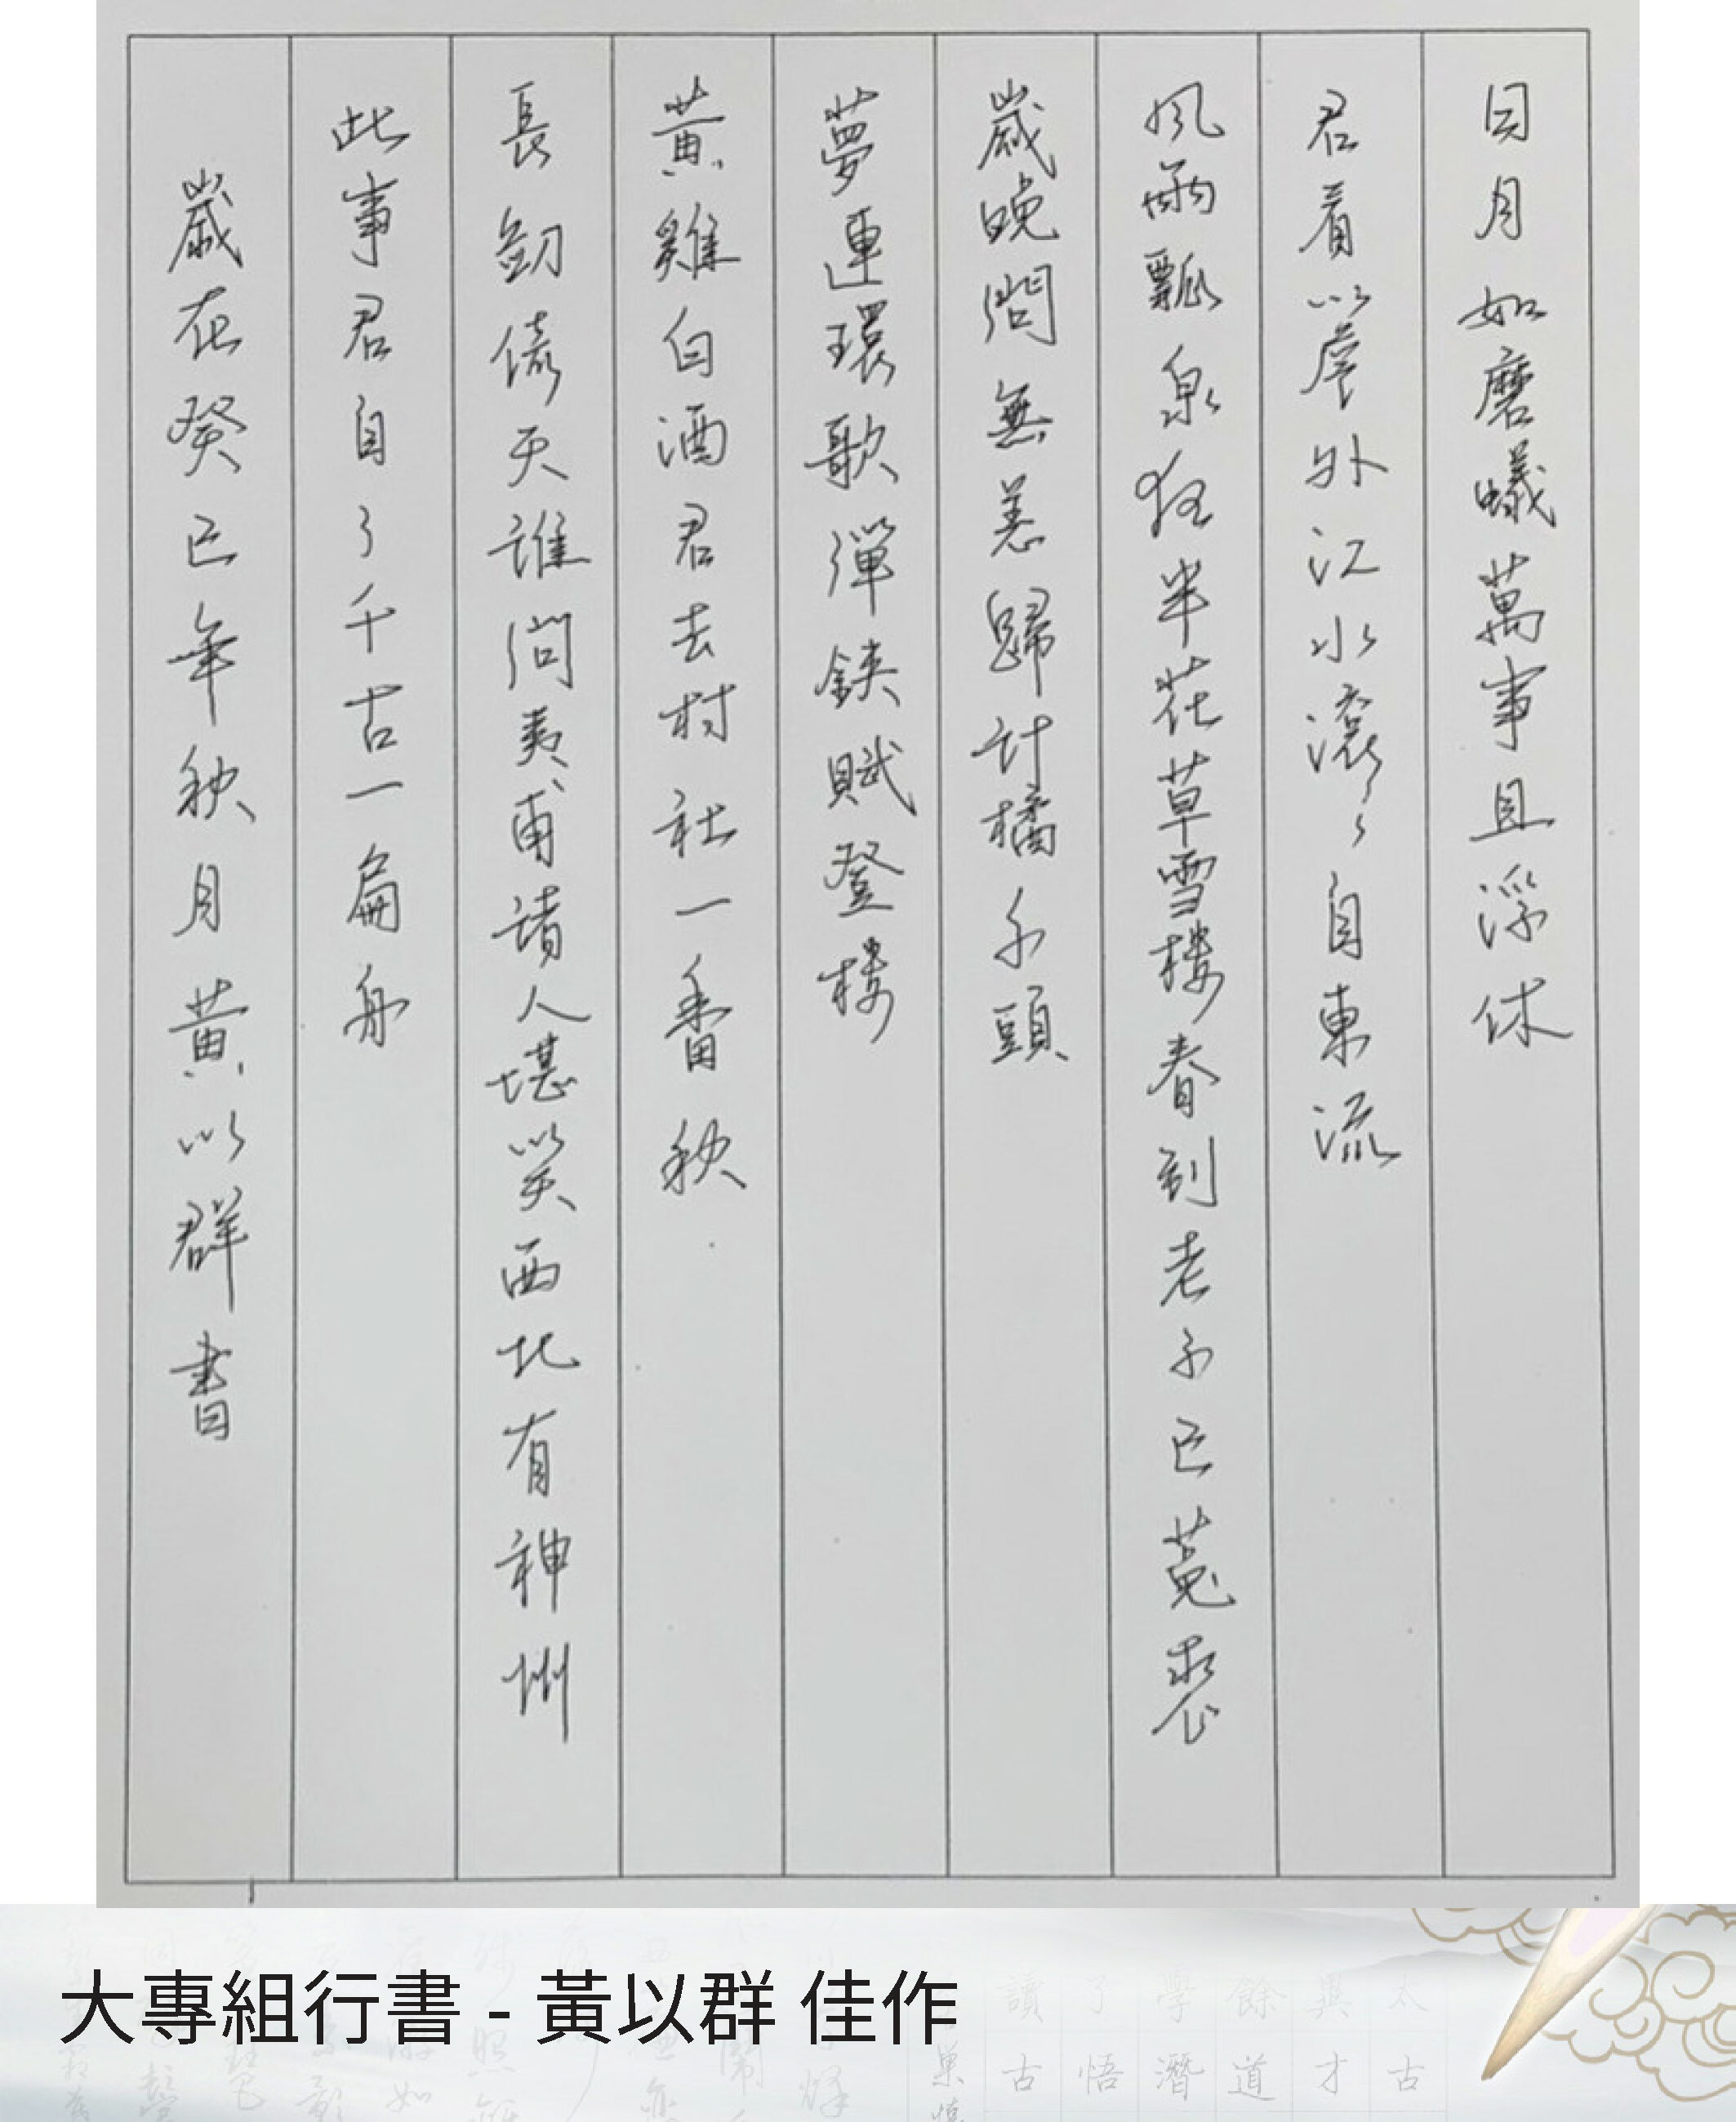 日月如磨蟻萬事且浮休
君看簷外江水滾滾自東流
風雨瓢泉夜半花草雪樓春到老子已菟裘
歲晚問無恙歸計橘千頭
夢連環歌彈鋏賦登樓
黃雞白酒君去村社一番秋
長劍倚天誰問夷甫諸人堪笑西北有神州
此事君自了千古一扁舟
歲在癸巳年秋月黃以群書
大專組行書 - 黃以群 佳作
太古
與才
餘道
學潛
了悟
讀古